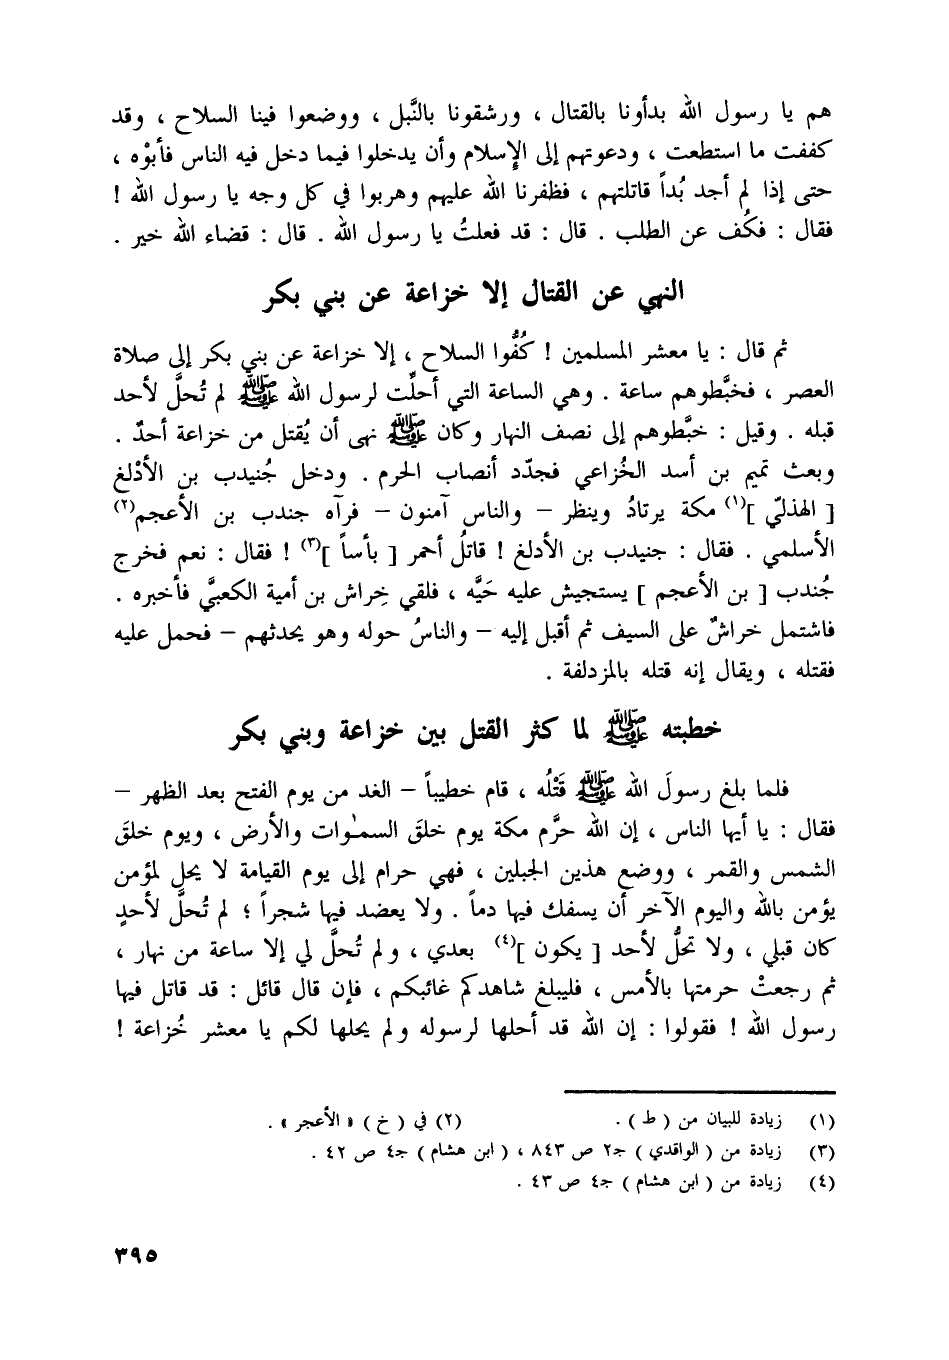 هم يا رسول الله بدأونا بالقتال ، ورشقونا بالنَّبل ، ووضعوا فينا السلاح ، وقد
كففت ما استطعت ، ودعوتهم إلى الإسلام وأن يدخلوا فيما دخل فيه الناس فأبوْه ،
حتى إذا لم أجد بُداً قاتلتهم ، فظفرنا الله عليهم وهربوا في كل وجه يا رسول الله !
فقال : فكُف عن الطلب . قال : قد فعلتُ يا رسول الله . قال : قضاء الله خير .
النهي عن القتال إلا خزاعة عن بني بكر
ثم قال : يا معشر المسلمين ! كُفُّوا السلاح ، إلا خزاعة عن بني بكر إلى صلاة
العصر ، فخبَّطوهم ساعة . وهي الساعة التي أحلِّت لرسول الله ﷺ لم تُحلَّ لأحد
قبله . وقيل : خبَّطوهم إلى نصف النهار وكان ﷺ نهى أن يُقتل من خزاعة أحدٌ .
وبعث تميم بن أسد الخُزاعي فجدّد أنصاب الحرم . ودخل جُنيدب بن الأدْلغ
[ الهذليّ ](١) مكة يرتادُ وينظر – والناس آمنون – فرآه جندب بن الأعجم(٢)
الأسلمي . فقال : جنيدب بن الأدلغ ! قاتلُ أحمر [ بأساً ](٣) ! فقال : نعم فخرج
جُندب [ بن الأعجم ] يستجيش عليه حَيَّه ، فلقي خِراش بن أمية الكعبيَّ فأخبره .
فاشتمل خراشٌ على السيف ثم أقبل إليه – والناسُ حوله وهو يحدثهم – فحمل عليه
فقتله ، ويقال إنه قتله بالمزدلفة .
خطبته ﷺ لما كثر القتل بين خزاعة وبني بكر
فلما بلغ رسولَ الله ﷺ قَتْلُه ، قام خطيباً – الغد من يوم الفتح بعد الظهر –
فقال : يا أيها الناس ، إن الله حرَّم مكة يوم خلقَ السمٰوات والأرض ، ويوم خلقَ
الشمس والقمر ، ووضع هذين الجبلين ، فهي حرام إلى يوم القيامة لا يحل لمؤمن
يؤمن بالله واليوم الآخر أن يسفك فيها دماً . ولا يعضد فيها شجراً ؛ لم تُحلَّ لأحدٍ
كان قبلي ، ولا تحلُّ لأحد [ يكون ](٤) بعدي ، ولم تُحلَّ لي إلا ساعة من نهار ،
ثم رجعتْ حرمتها بالأمس ، فليبلغ شاهدكم غائبكم ، فإن قال قائل : قد قاتل فيها
رسول الله ! فقولوا : إن الله قد أحلها لرسوله ولم يحلها لكم يا معشر خُزاعة !
(١) زيادة للبيان من ( ط ) . (٢) في ( خ ) « الأعجر » .
(٣) زيادة من ( الواقدي ) جـ٢ ص ٨٤٣ ، ( ابن هشام ) جـ٤ ص ٤٢ .
(٤) زيادة من ( ابن هشام ) جـ٤ ص ٤٣ .
٣٩٥